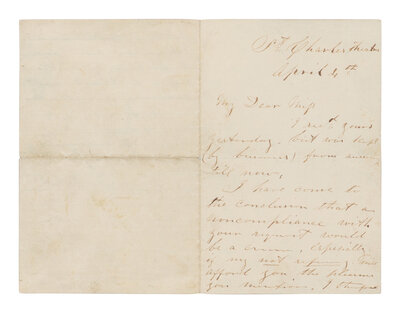 St Charles theatre
April 4th
My Dear Miss
I recd yours
yesterday, but was kept
(by business) from
till now,
I have come to
the conclusion that a
noncompliance with
your request would
be a crime, especially
if my not
afford you the pleasure
you mention, I therefore